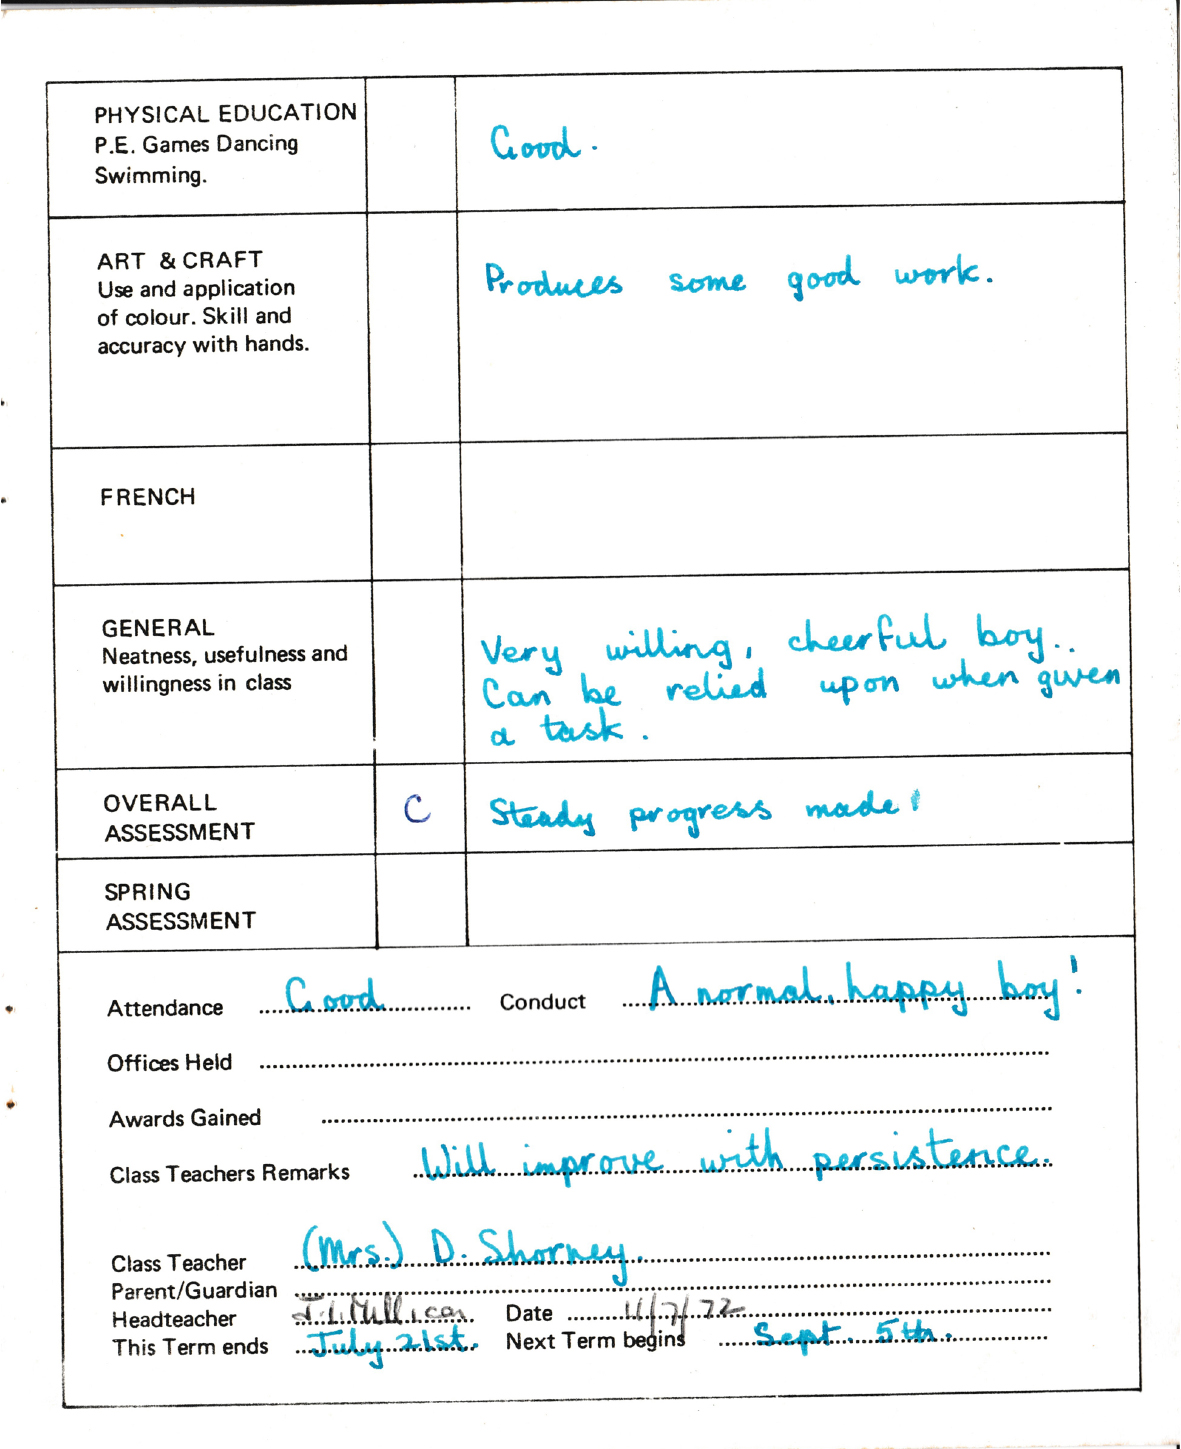 PHYSICAL EDUCATION
P.E. Games Dancing
Swimming.
Good.
ART & CRAFT
Use and application
of colour. Skill and
accuracy with hands.
Produces some good work.
FRENCH
GENERAL
Neatness, usefulness and
willingness in class
Very willing, cheerful boy..
Can be relied upon when given
a task.
OVERALL
ASSESSMENT
C
Steady progress made!
SPRING
ASSESSMENT
Attendance Good Conduct A normal, happy boy!
Offices Held
Awards Gained
Class Teachers Remarks Will improve with persistence.
Class Teacher (Mrs.) D. Shorney.
Parent/Guardian
Headteacher Date 11/7/72
This Term ends July 21st. Next Term begins Sept. 5th.